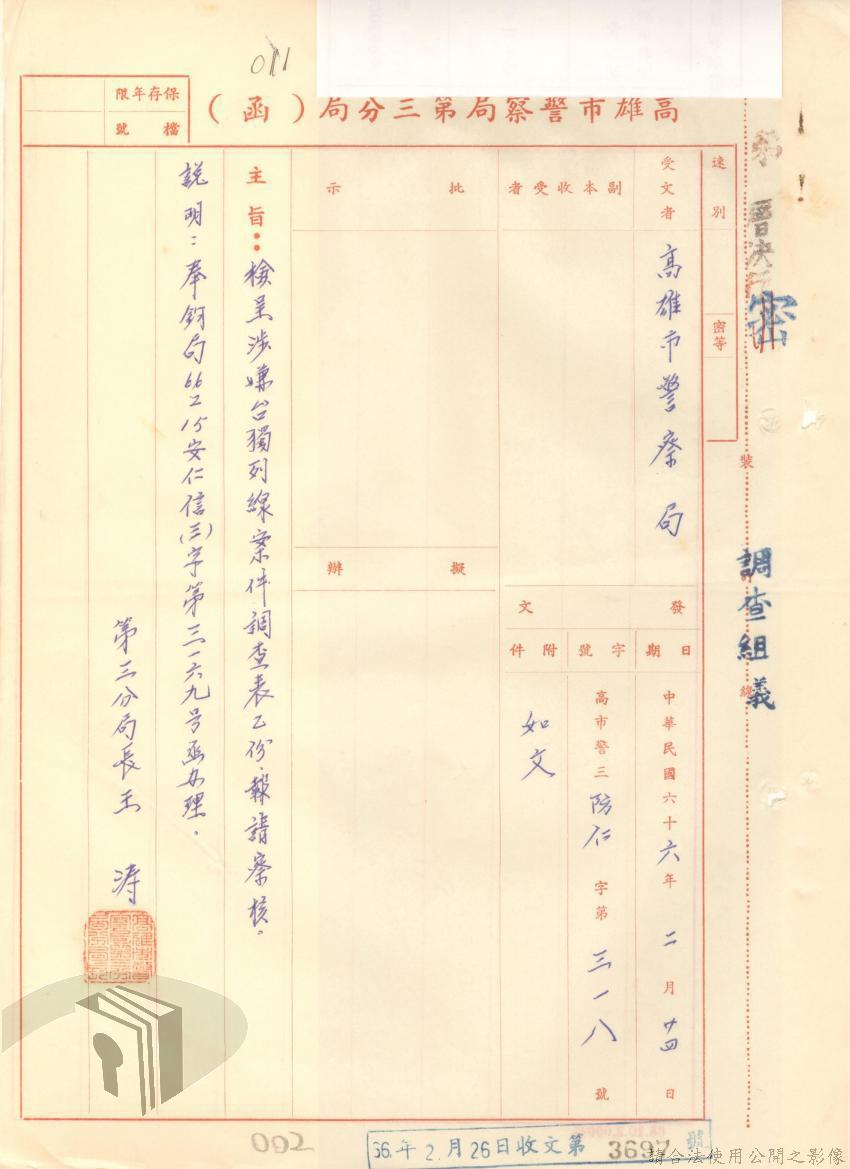 011
高雄市警察局第三分局（函）
保存年限
檔號
速別
密等
密
裝
線
調查組義
受文者
高雄市警察局
副本收受者
發文
日期
中華民國六十六年二月廿四日
字號
高市警三防仁字第三一八號
附件
如文
批示
擬辦
主旨：檢呈涉嫌台獨列線案件調查表乙份，報請察核。
說明：奉鈞局66 2 15安仁信(三)字第三一六九号函办理。
第三分局長王濤
002
66.年2.月26日收文第3697號
請合法使用公開之影像